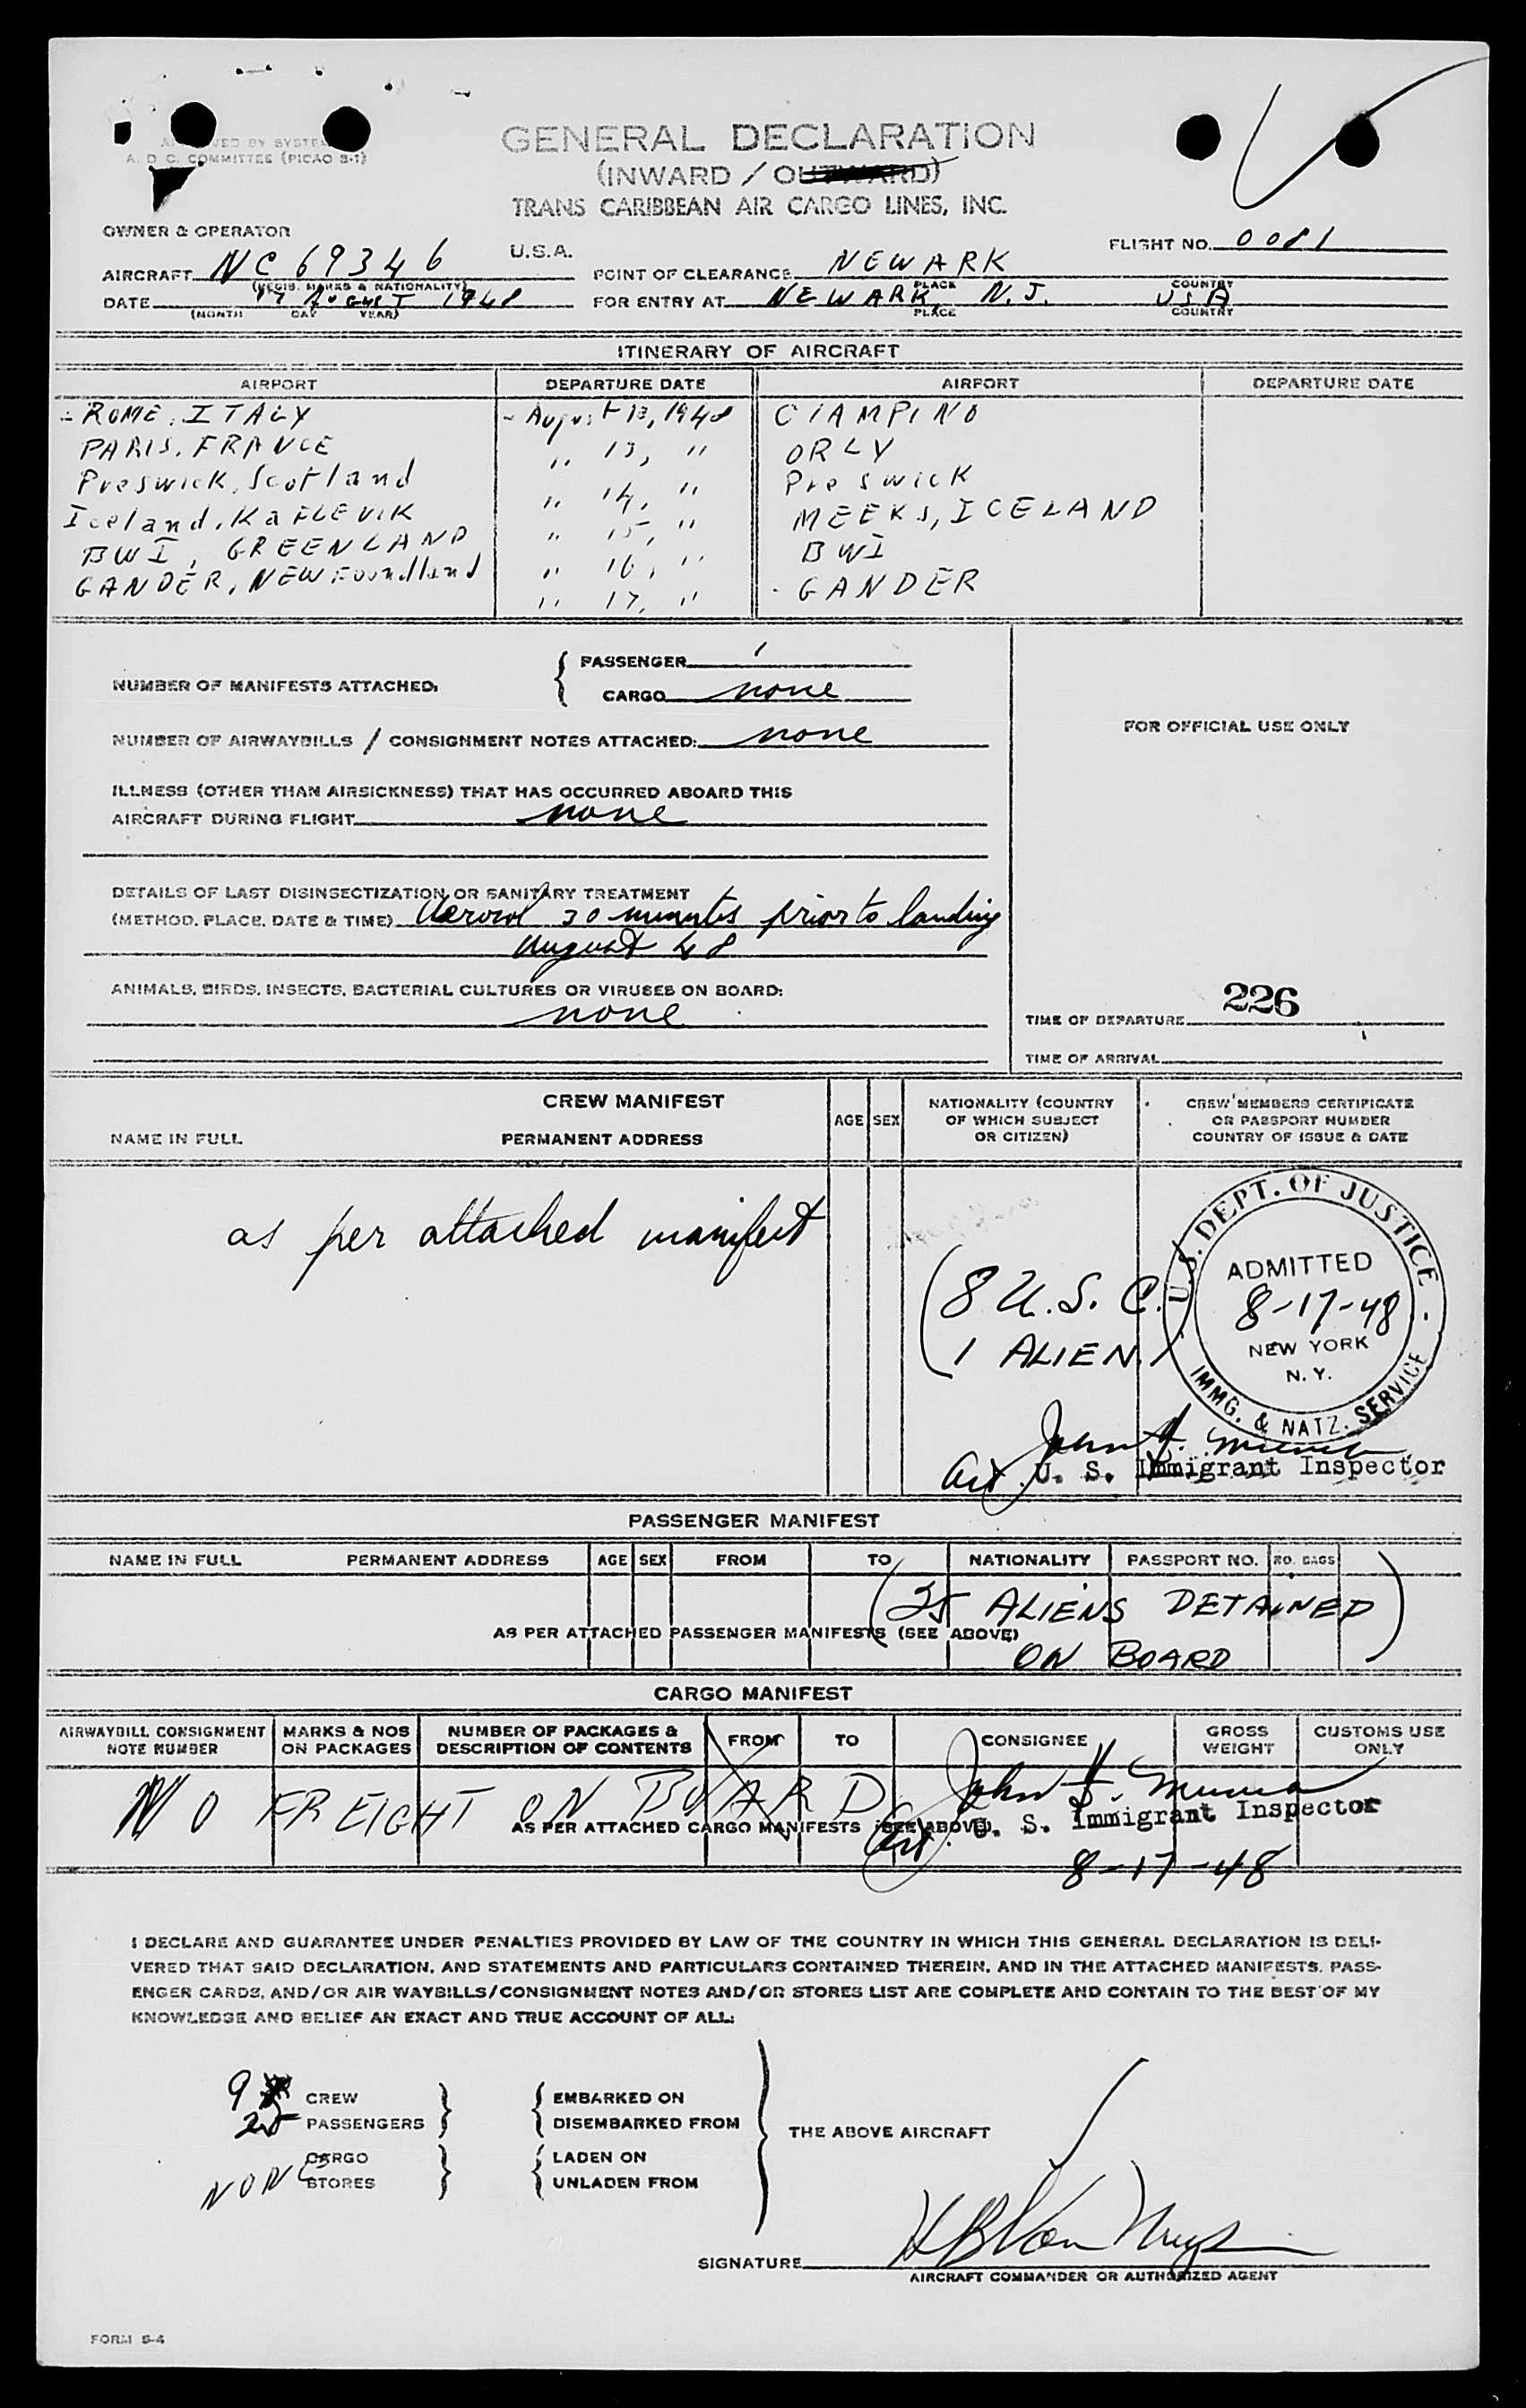 GENERAL DECLARATION
(INWARD / OUTWARD)
TRANS CARIBBEAN AIR CARGO LINES, INC.
BY SYSTEM
A. D. C. COMMITTEE (PICAO S-1)
OWNER & OPERATOR
U.S.A.
FLIGHT NO. 0081
AIRCRAFT NC 69346
(REGIS. MARKS & NATIONALITY)
POINT OF CLEARANCE NEWARK
PLACE COUNTRY
DATE 17 August 1948
(MONTH DAY YEAR)
FOR ENTRY AT NEWARK, N.J. USA
PLACE COUNTRY
ITINERARY OF AIRCRAFT
AIRPORT DEPARTURE DATE AIRPORT DEPARTURE DATE
- ROME, ITALY - August 13, 1948 CIAMPINO
PARIS, FRANCE " 13, " ORLY
Preswick, Scotland " 14, " Preswick
Iceland, KaFLEVIK " 15, " MEEKS, ICELAND
BWI, GREENLAND " 16, " BWI
GANDER, NEWFoundland " 17, " GANDER
NUMBER OF MANIFESTS ATTACHED:
PASSENGER 1
CARGO none
NUMBER OF AIRWAYBILLS / CONSIGNMENT NOTES ATTACHED: none
FOR OFFICIAL USE ONLY
ILLNESS (OTHER THAN AIRSICKNESS) THAT HAS OCCURRED ABOARD THIS
AIRCRAFT DURING FLIGHT none
DETAILS OF LAST DISINSECTIZATION OR SANITARY TREATMENT
(METHOD, PLACE, DATE & TIME) Aerosol 30 minutes prior to landing
August 48
ANIMALS, BIRDS, INSECTS, BACTERIAL CULTURES OR VIRUSES ON BOARD:
none
TIME OF DEPARTURE 226
TIME OF ARRIVAL
CREW MANIFEST
NAME IN FULL PERMANENT ADDRESS AGE SEX
NATIONALITY (COUNTRY
OF WHICH SUBJECT
OR CITIZEN)
CREW MEMBERS CERTIFICATE
OR PASSPORT NUMBER
COUNTRY OF ISSUE & DATE
as per attached manifest
(8 U.S.C.
1 ALIEN.)
U.S. DEPT. OF JUSTICE
ADMITTED
8-17-48
NEW YORK
N. Y.
IMMG. & NATZ. SERVICE
John J.
U. S. Immigrant Inspector
PASSENGER MANIFEST
NAME IN FULL PERMANENT ADDRESS AGE SEX FROM TO NATIONALITY PASSPORT NO. NO. BAGS
(25 ALIENS DETAINED
AS PER ATTACHED PASSENGER MANIFESTS (SEE ABOVE)
ON BOARD)
CARGO MANIFEST
AIRWAYBILL CONSIGNMENT
NOTE NUMBER
MARKS & NOS
ON PACKAGES
NUMBER OF PACKAGES &
DESCRIPTION OF CONTENTS
FROM TO CONSIGNEE
GROSS
WEIGHT
CUSTOMS USE
ONLY
NO FREIGHT ON BOARD
AS PER ATTACHED CARGO MANIFESTS (SEE ABOVE)
John J.
U. S. Immigrant Inspector
8-17-48
I DECLARE AND GUARANTEE UNDER PENALTIES PROVIDED BY LAW OF THE COUNTRY IN WHICH THIS GENERAL DECLARATION IS DELI-
VERED THAT SAID DECLARATION, AND STATEMENTS AND PARTICULARS CONTAINED THEREIN, AND IN THE ATTACHED MANIFESTS, PASS-
ENGER CARDS, AND/OR AIR WAYBILLS/CONSIGNMENT NOTES AND/OR STORES LIST ARE COMPLETE AND CONTAIN TO THE BEST OF MY
KNOWLEDGE AND BELIEF AN EXACT AND TRUE ACCOUNT OF ALL:
9 CREW EMBARKED ON
25 PASSENGERS DISEMBARKED FROM
THE ABOVE AIRCRAFT
CARGO LADEN ON
NONE STORES UNLADEN FROM
SIGNATURE H B Van Nuys
AIRCRAFT COMMANDER OR AUTHORIZED AGENT
FORM S-4